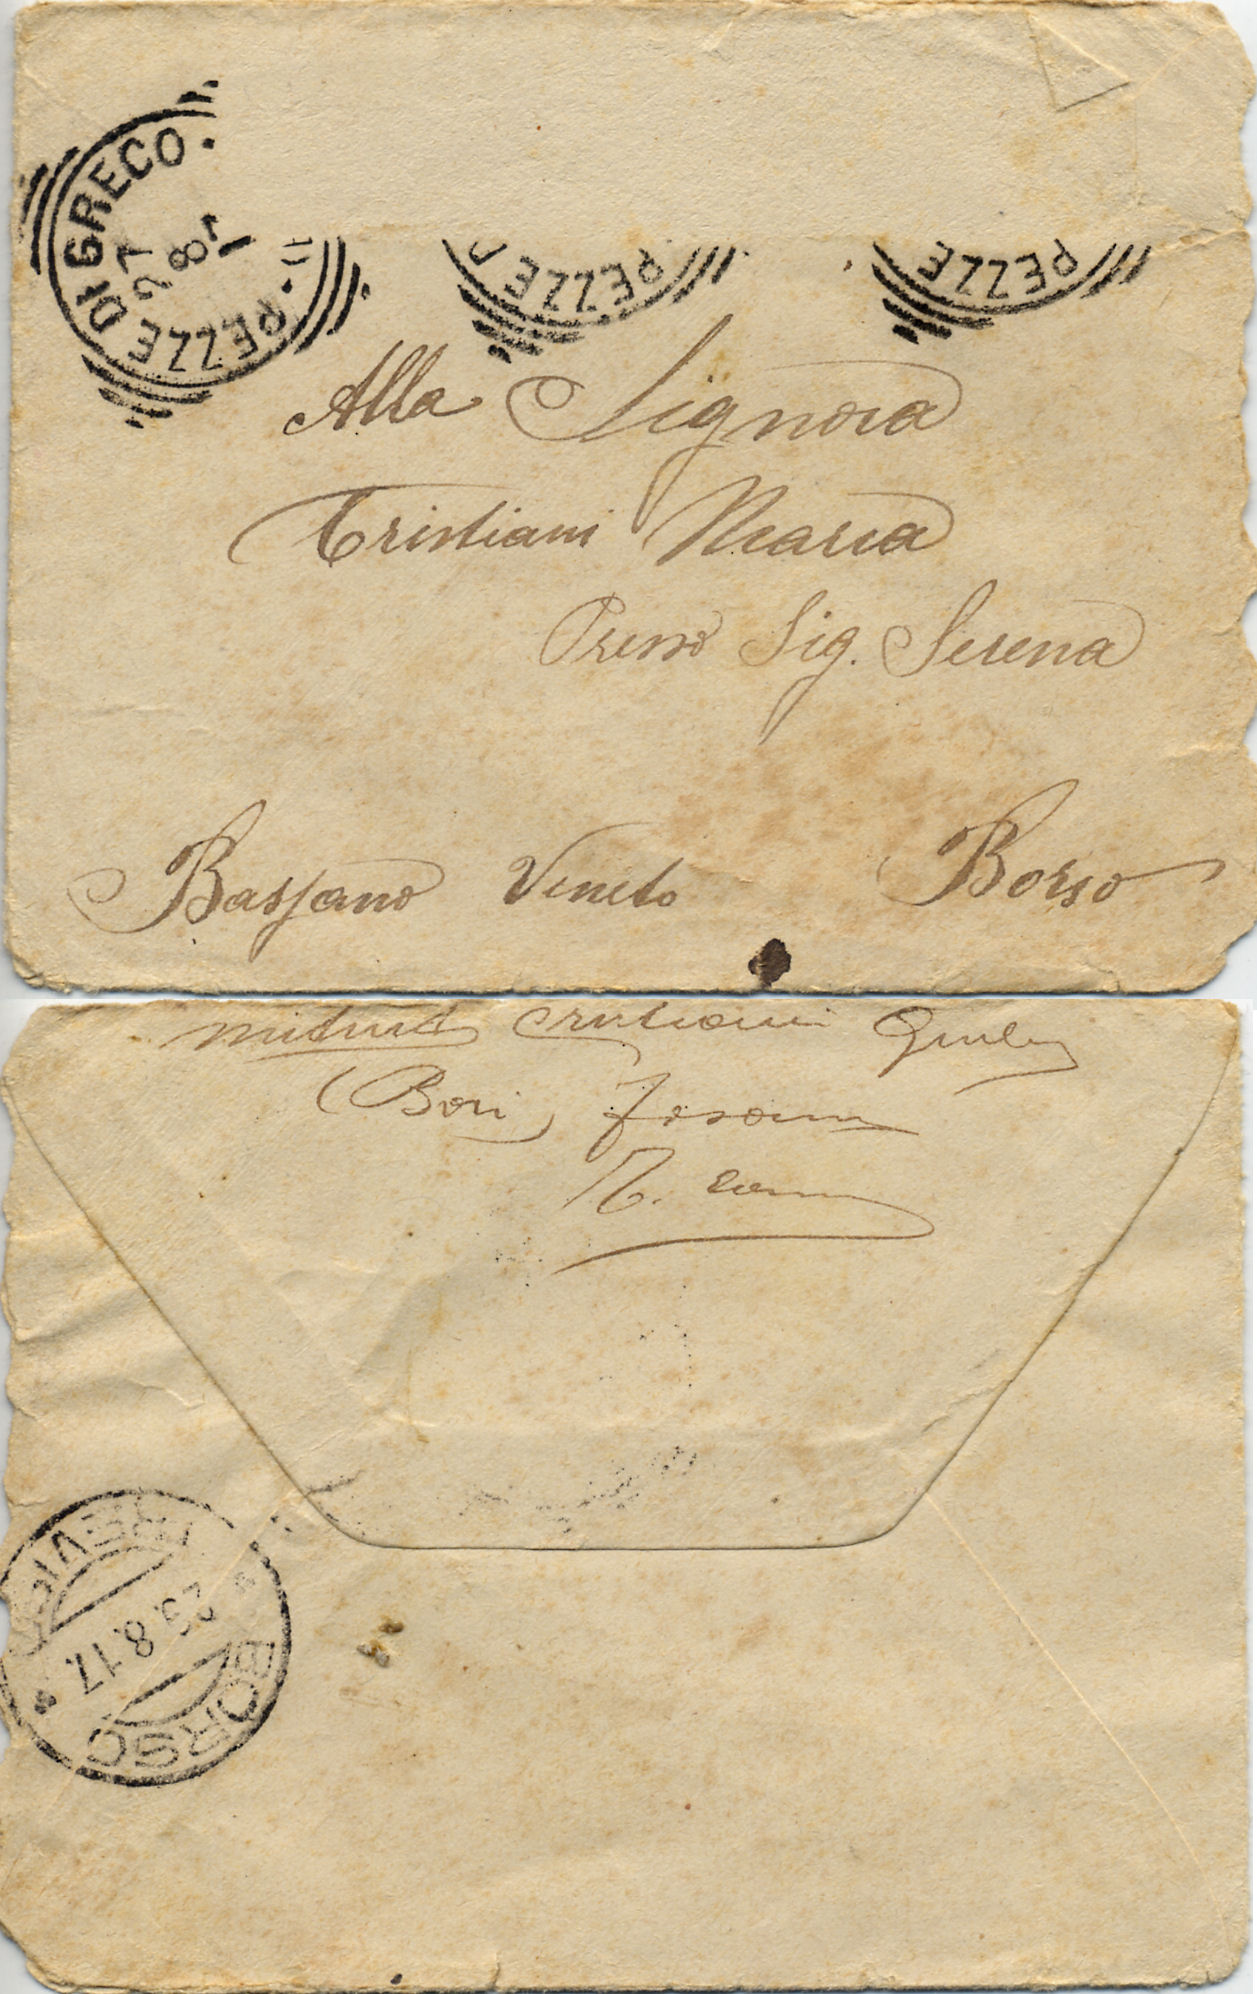 PEZZE DI GRECO
27
8
17
PEZZE
PEZZE
Alla Signora
Cristiani Maria
Presso Sig. Serena
Bassano Veneto Borso
Cristiani
(Bari)
BORSO
TREVISO
23.8.17.